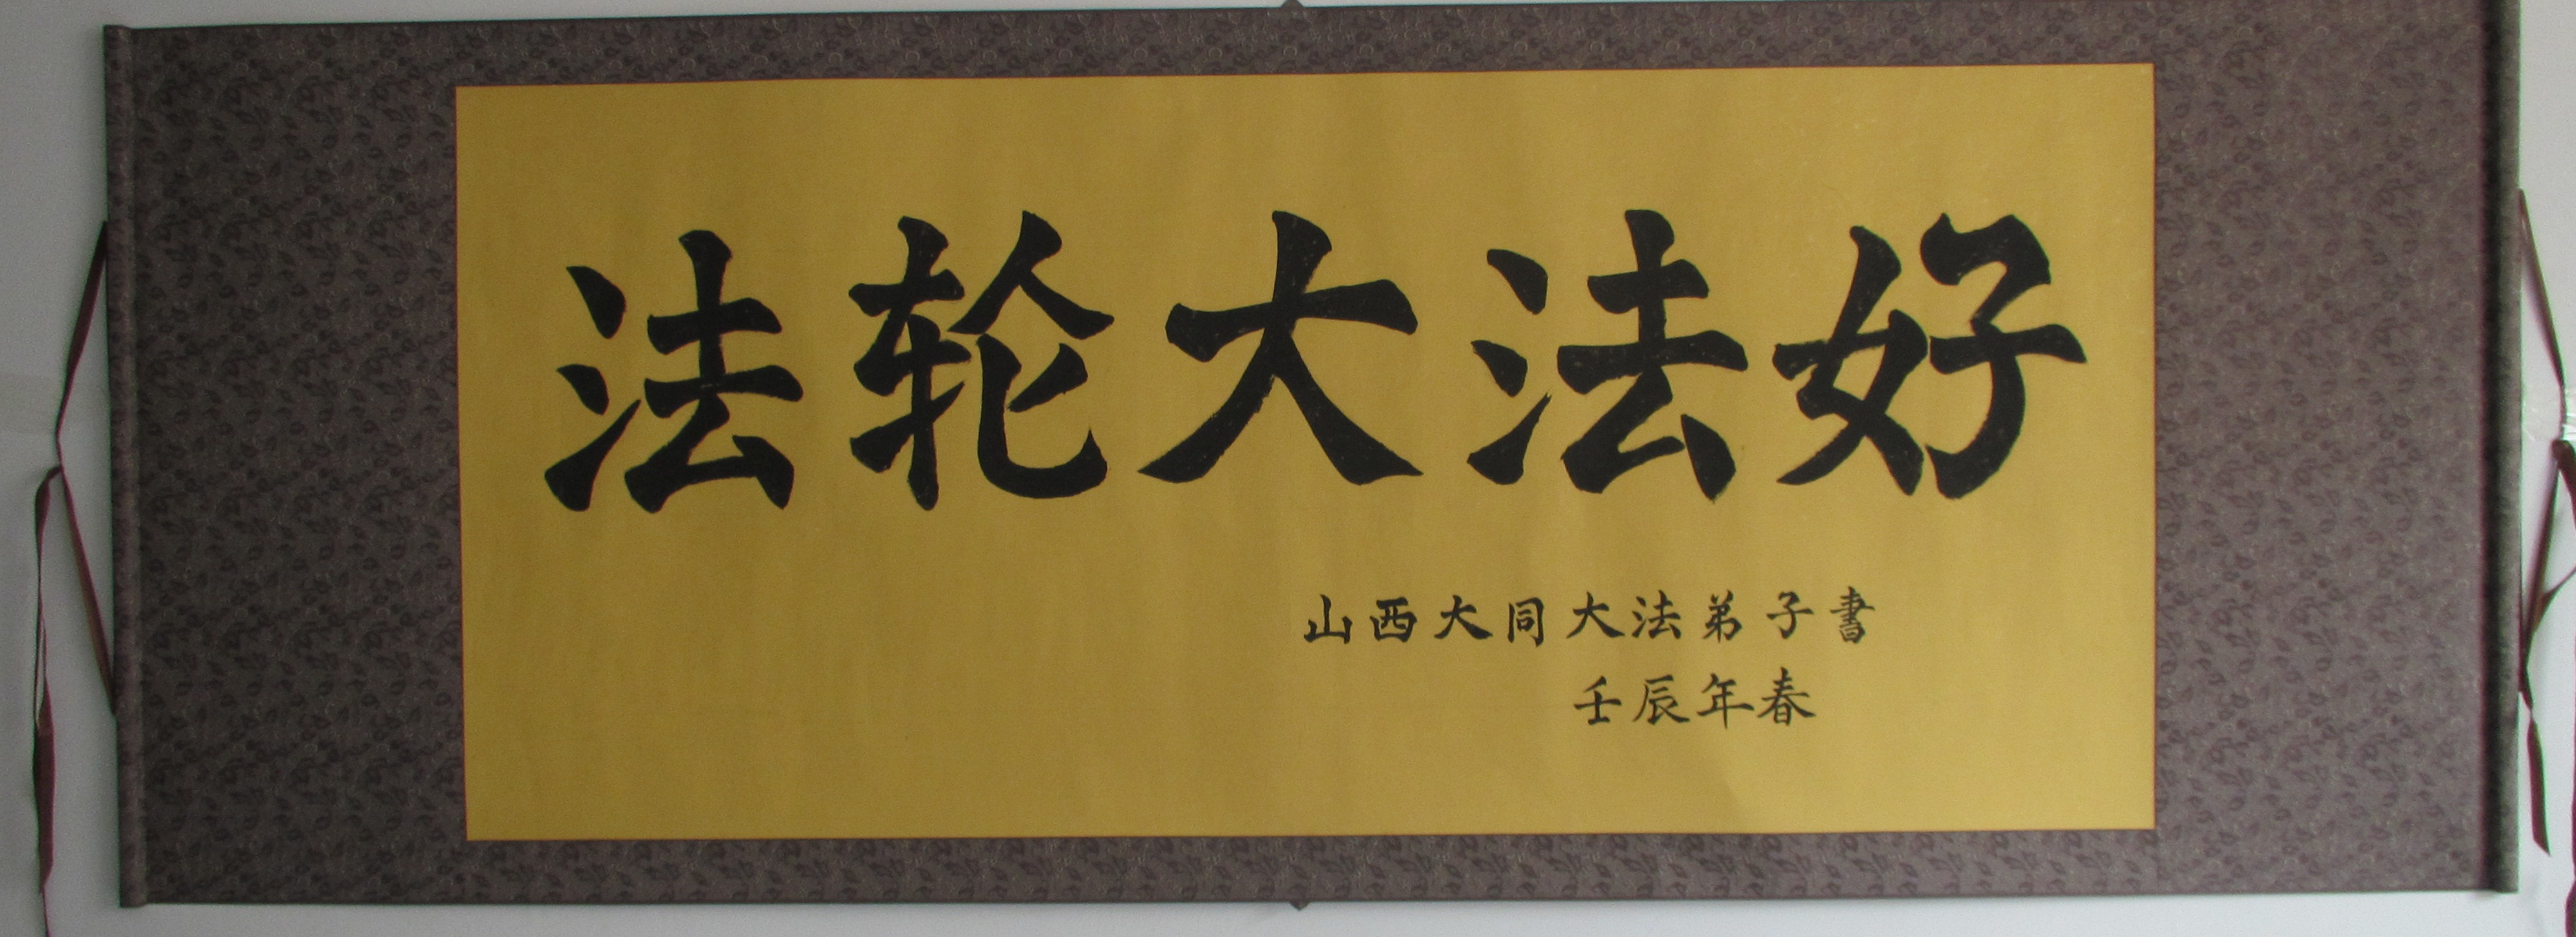 法轮大法好
山西大同大法弟子書
壬辰年春